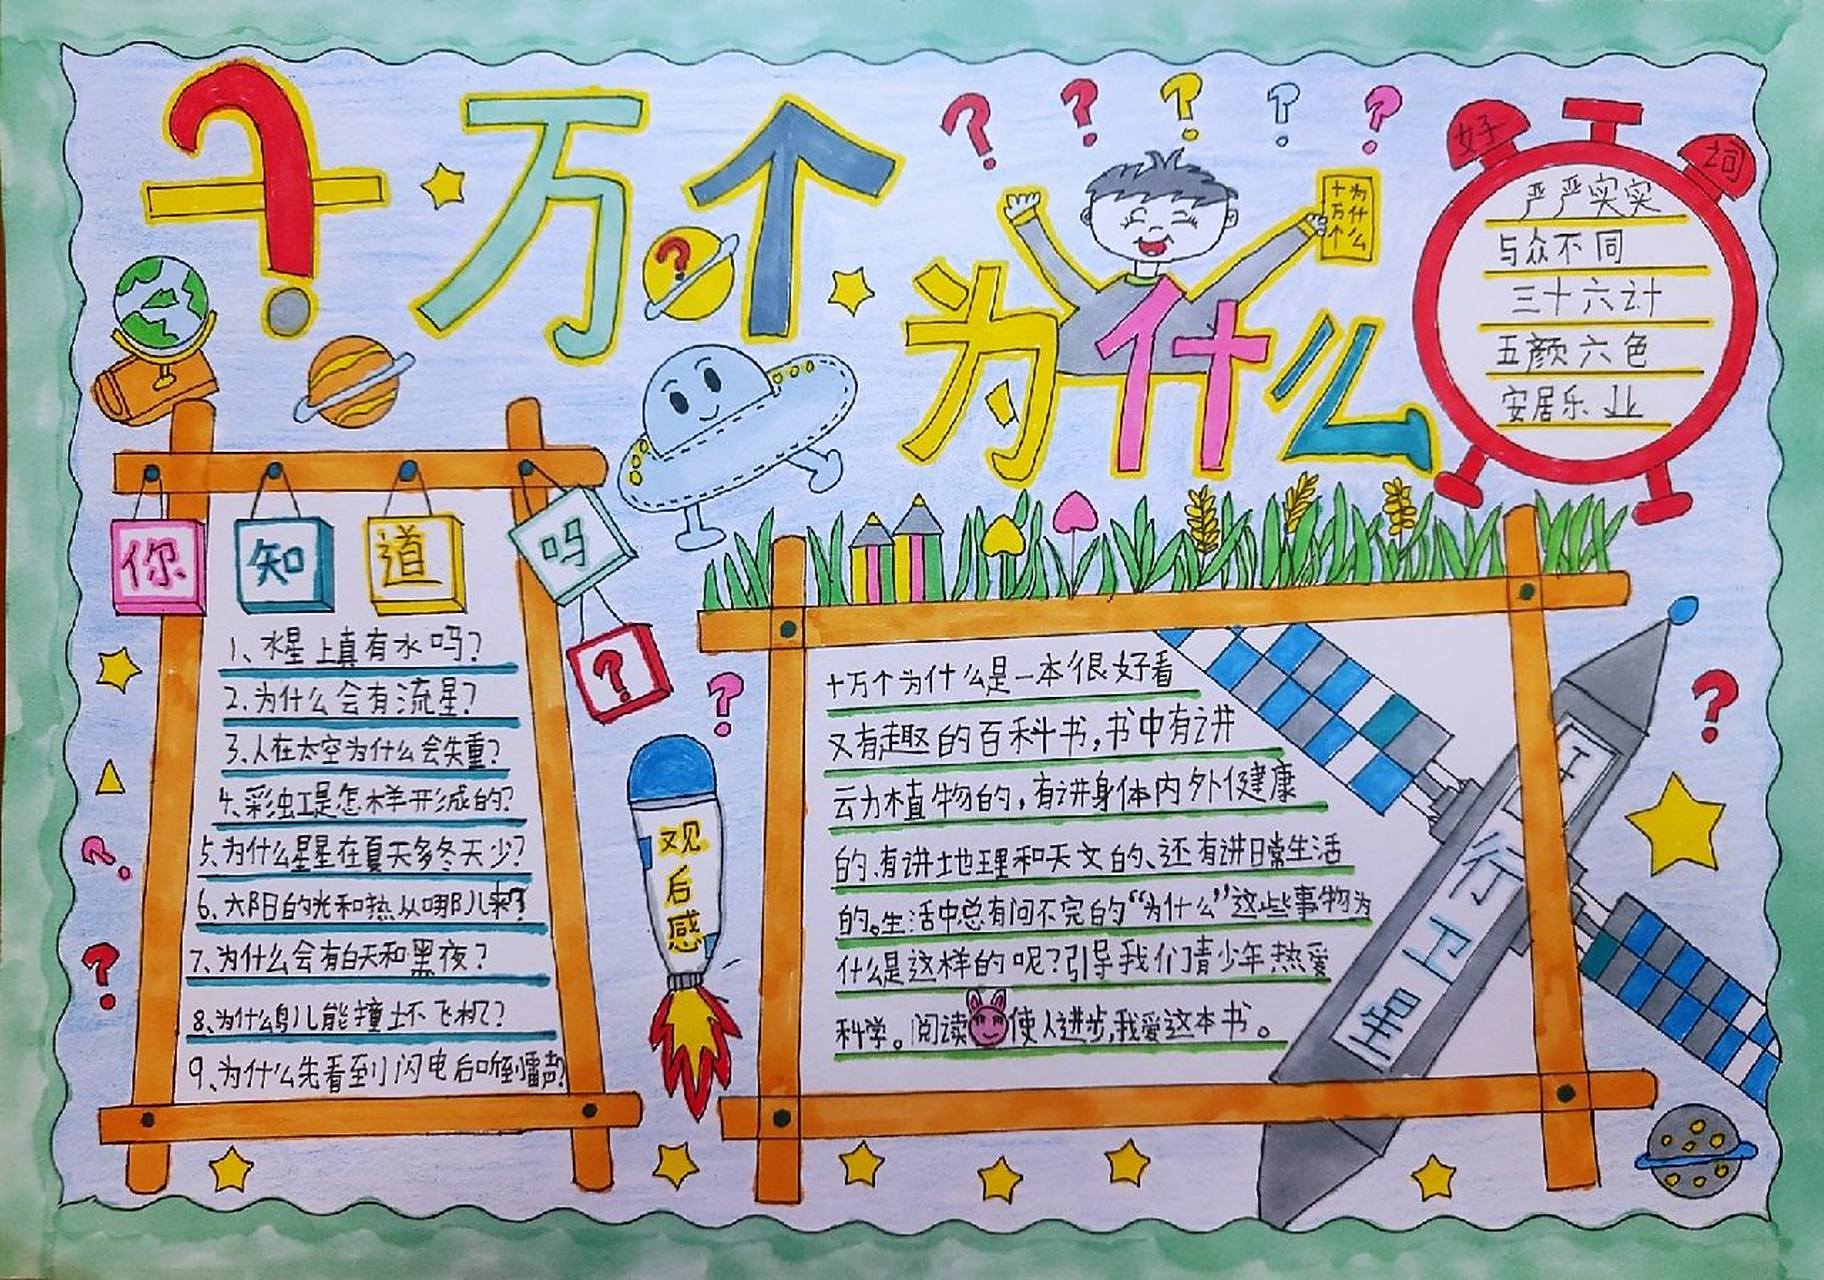 十万个
为什么
十万个
为什么
好词
严严实实
与众不同
三十六计
五颜六色
安居乐业
你知道吗?
1、水星上真有水吗?
2.为什么会有流星?
3、人在太空为什么会失重?
4.彩虹是怎样形成的?
5、为什么星星在夏天多冬天少?
6、太阳的光和热从哪儿来?
7、为什么会有白天和黑夜?
8、为什么鸟儿能撞坏飞机?
9、为什么先看到闪电后听到雷声?
观后感
十万个为什么是一本很好看
又有趣的百科书,书中有讲
动植物的,有讲身体内外健康
的.有讲地理和天文的、还有讲日常生活
的。生活中总有问不完的“为什么”这些事物为
什么是这样的呢?引导我们青少年热爱
科学。阅读使人进步,我爱这本书。
行卫星